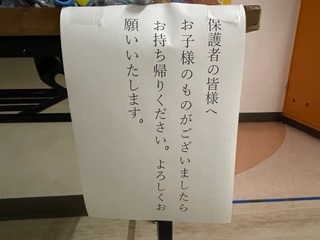 保護者の皆様へ
お子様のものがございましたら
お持ち帰りください。よろしくお
願いいたします。